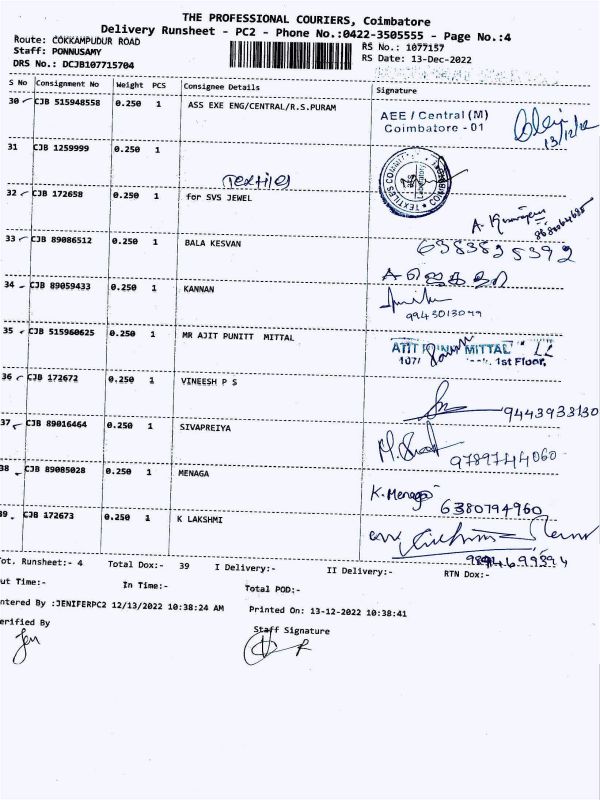 THE PROFESSIONAL COURIERS, Coimbatore
Delivery Runsheet - PC2 - Phone No.:0422-3505555 - Page No.:4
Route: COKKAMPUDUR ROAD
Staff: PONNUSAMY
DRS No.: DCJB107715704
RS No.: 1077157
RS Date: 13-Dec-2022
S No Consignment No Weight PCS Consignee Details Signature
30 CJB 515948558 0.250 1 ASS EXE ENG/CENTRAL/R.S.PURAM
AEE / Central (M)
Coimbatore - 01
13/12/22
31 CJB 1259999 0.250 1
(Textiles)
32 CJB 172658 0.250 1 for SVS JEWEL
33 CJB 89086512 0.250 1 BALA KESVAN
6383525392
34 CJB 89059433 0.250 1 KANNAN
9943013099
35 CJB 515960625 0.250 1 MR AJIT PUNITT MITTAL
MITTAL
107/ 1st Floor,
36 CJB 172672 0.250 1 VINEESH P S
9443933130
37 CJB 89016464 0.250 1 SIVAPREIYA
9789744060
38 CJB 89085028 0.250 1 MENAGA
K. Menaga
6380794960
39. CJB 172673 0.250 1 K LAKSHMI
Tot. Runsheet:- 4 Total Dox:- 39 I Delivery:- II Delivery:- RTN Dox:-
out Time:- In Time:- Total POD:-
ntered By :JENIFERPC2 12/13/2022 10:38:24 AM Printed On: 13-12-2022 10:38:41
erified By Staff Signature
Jen